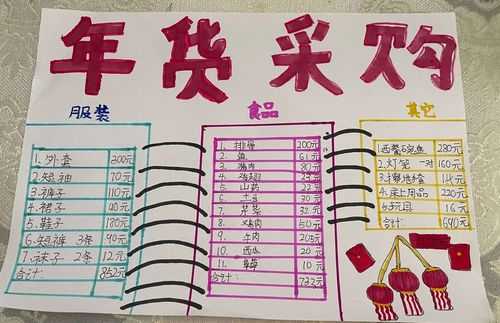 年货采购
服装
1. 外套 200元
2. 短袖 70元
3. 裤子 110元
4. 裙子 90元
5. 鞋子 180元
6. 短裤 3条 90元
7. 袜子 2条 12元
合计: 852元
食品
1. 排骨 200元
2. 鱼
3. 鸡肉
4. 鸡翅
5. 山药
6. 土豆 30元
7. 芹菜 32元
8. 50元
9. 牛肉 205元
10. 西瓜 20元
11. 草莓 10元
合计: 732元
其它
280元
2.灯笼 一对 160元
14元
4.床上用品 220元
5.玩具 16元
合计 690元